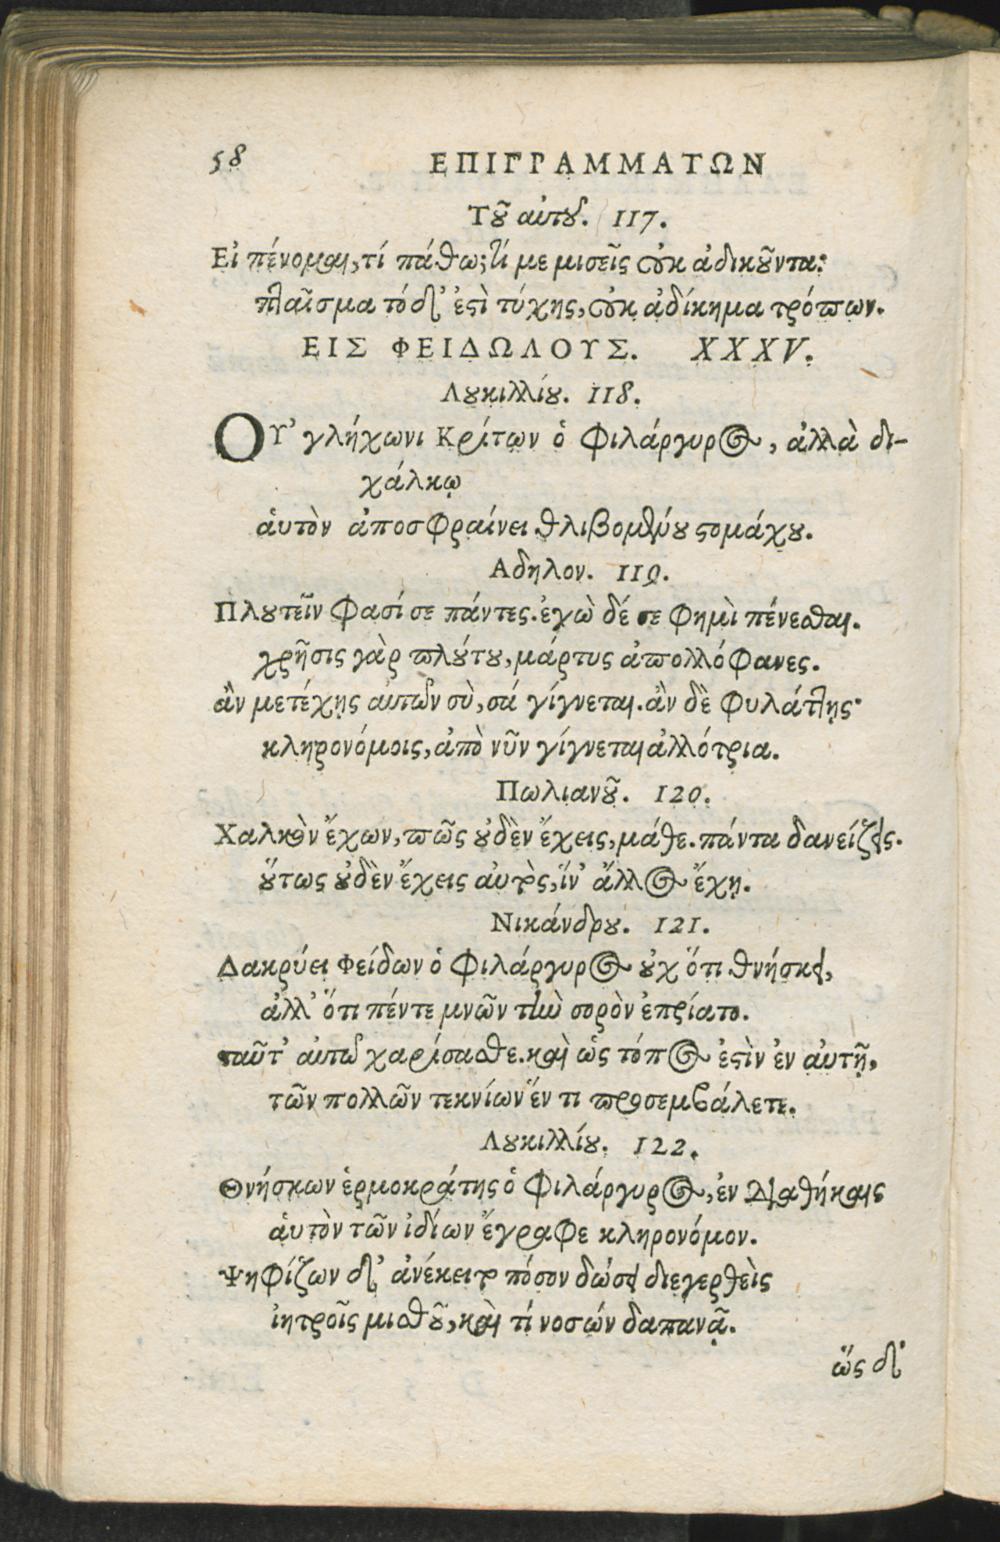 58 ΕΠΙΓΡΑΜΜΑΤΩΝ
Τοῦ αὐτοῦ. 117.
Εἰ πένομαι, τί πάθω; τί με μισεῖς οὐκ ἀδικοῦντα;
πλαῖσμα τόδ' ἐστὶ τύχης, οὐκ ἀδίκημα τρόπων.
ΕΙΣ ΦΕΙΔΩΛΟΥΣ. XXXV.
Λουκιλλίου. 118.
ΟΥ' γλήχωνι Κρίτων ὁ φιλάργυρος, ἀλλὰ δι-
χάλκῳ
αὑτὸν ἀποσφραίνει θλιβομένου στομάχου.
Αδηλον. 119.
Πλουτεῖν φασί σε πάντες. ἐγὼ δέ σε φημὶ πένεσθαι.
χρῆσις γὰρ πλούτου, μάρτυς ἀπολλόφανες.
ἂν μετέχῃς αὐτῶν σὺ, σά γίγνεται. ἂν δὲ φυλάττῃς·
κληρονόμοις, ἀπὸ νῦν γίγνεται ἀλλότρια.
Πωλιανοῦ. 120.
Χαλκὸν ἔχων, πῶς οὐδὲν ἔχεις, μάθε. πάντα δανείζεις.
οὕτως οὐδὲν ἔχεις αὐτὸς, ἵν' ἄλλος ἔχῃ.
Νικάνδρου. 121.
Δακρύει Φείδων ὁ φιλάργυρος οὐχ ὅτι θνήσκει,
ἀλλ' ὅτι πέντε μνῶν τὴν σορὸν ἐπρίατο.
ταῦτ' αὐτῷ χαρίσασθε. καὶ ὡς τόπος ἐστὶν ἐν αὐτῇ,
τῶν πολλῶν τεκνίων ἕν τι προσεμβάλετε.
Λουκιλλίου. 122.
Θνήσκων ἑρμοκράτης ὁ φιλάργυρος, ἐν διαθήκαις
αὑτὸν τῶν ἰδίων ἔγραφε κληρονόμον.
Ψηφίζων δ' ἀνέκειτο πόσον δώσει διεγερθεὶς
ἰητροῖς μισθοῦ, καὶ τί νοσῶν δαπανᾷ.
ὥς δ'